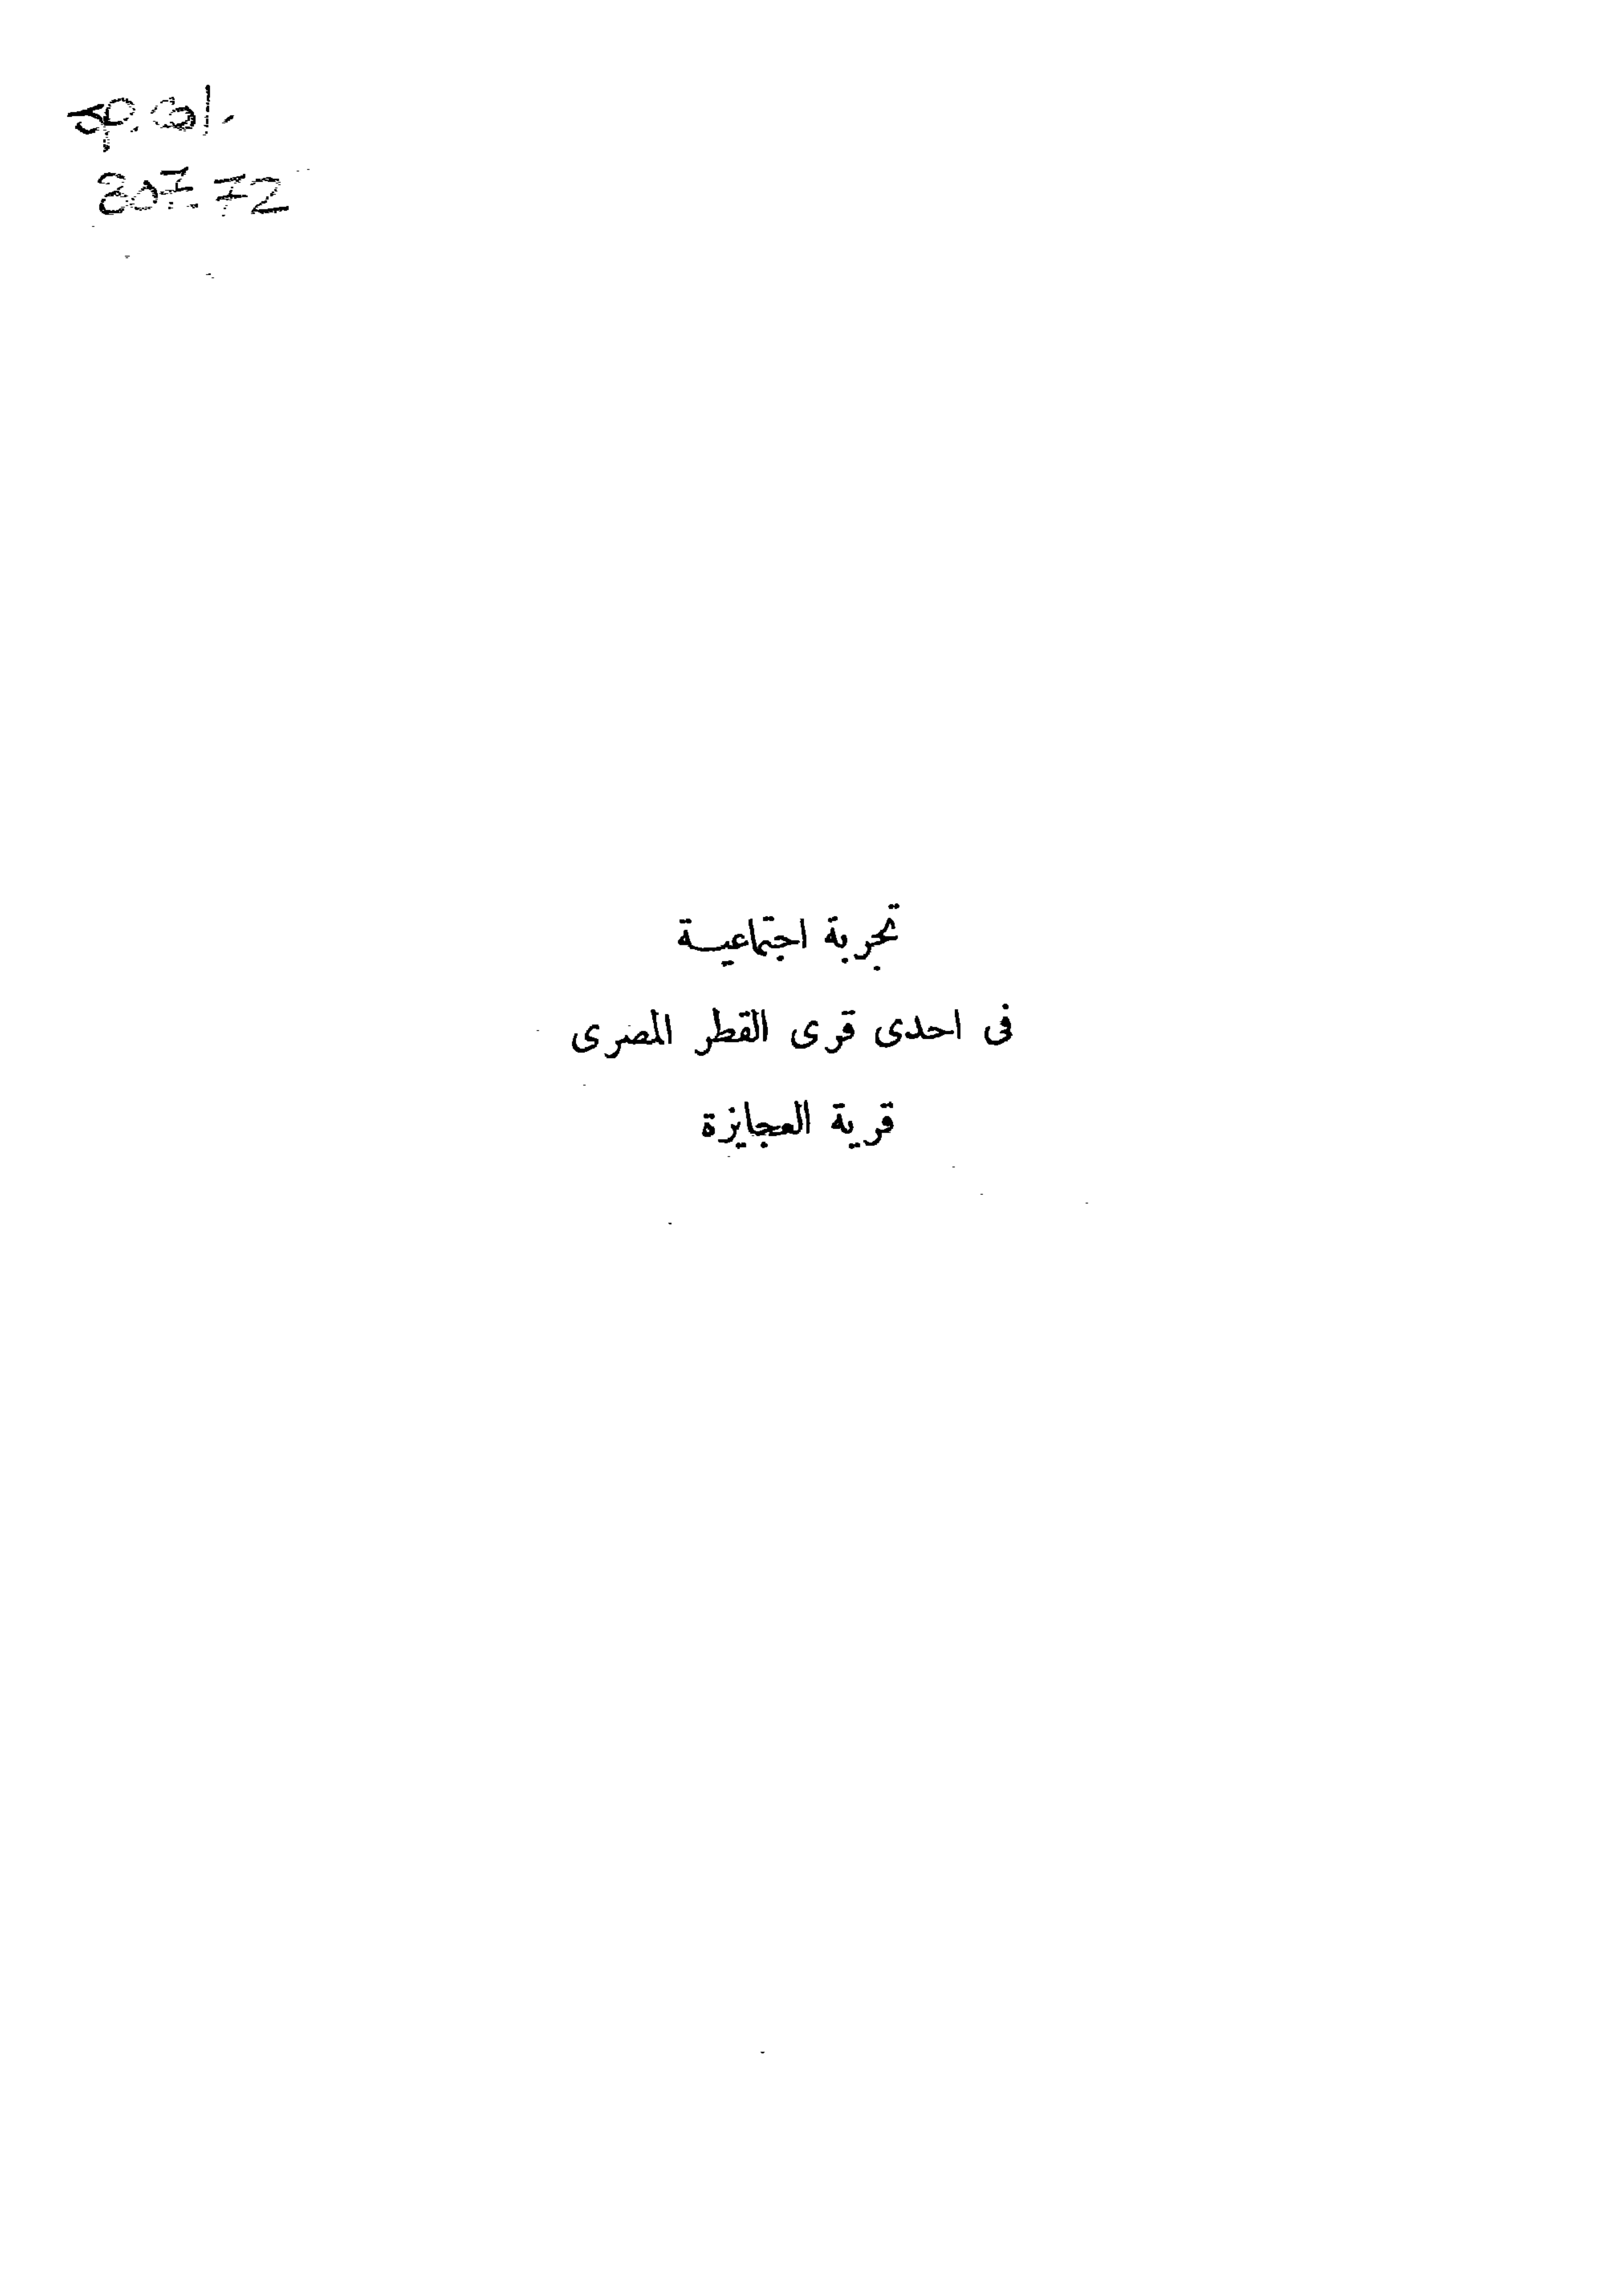 307.72
تجربة اجتماعيـة
فى احدى قرى القطر المصرى
قرية العجايزة